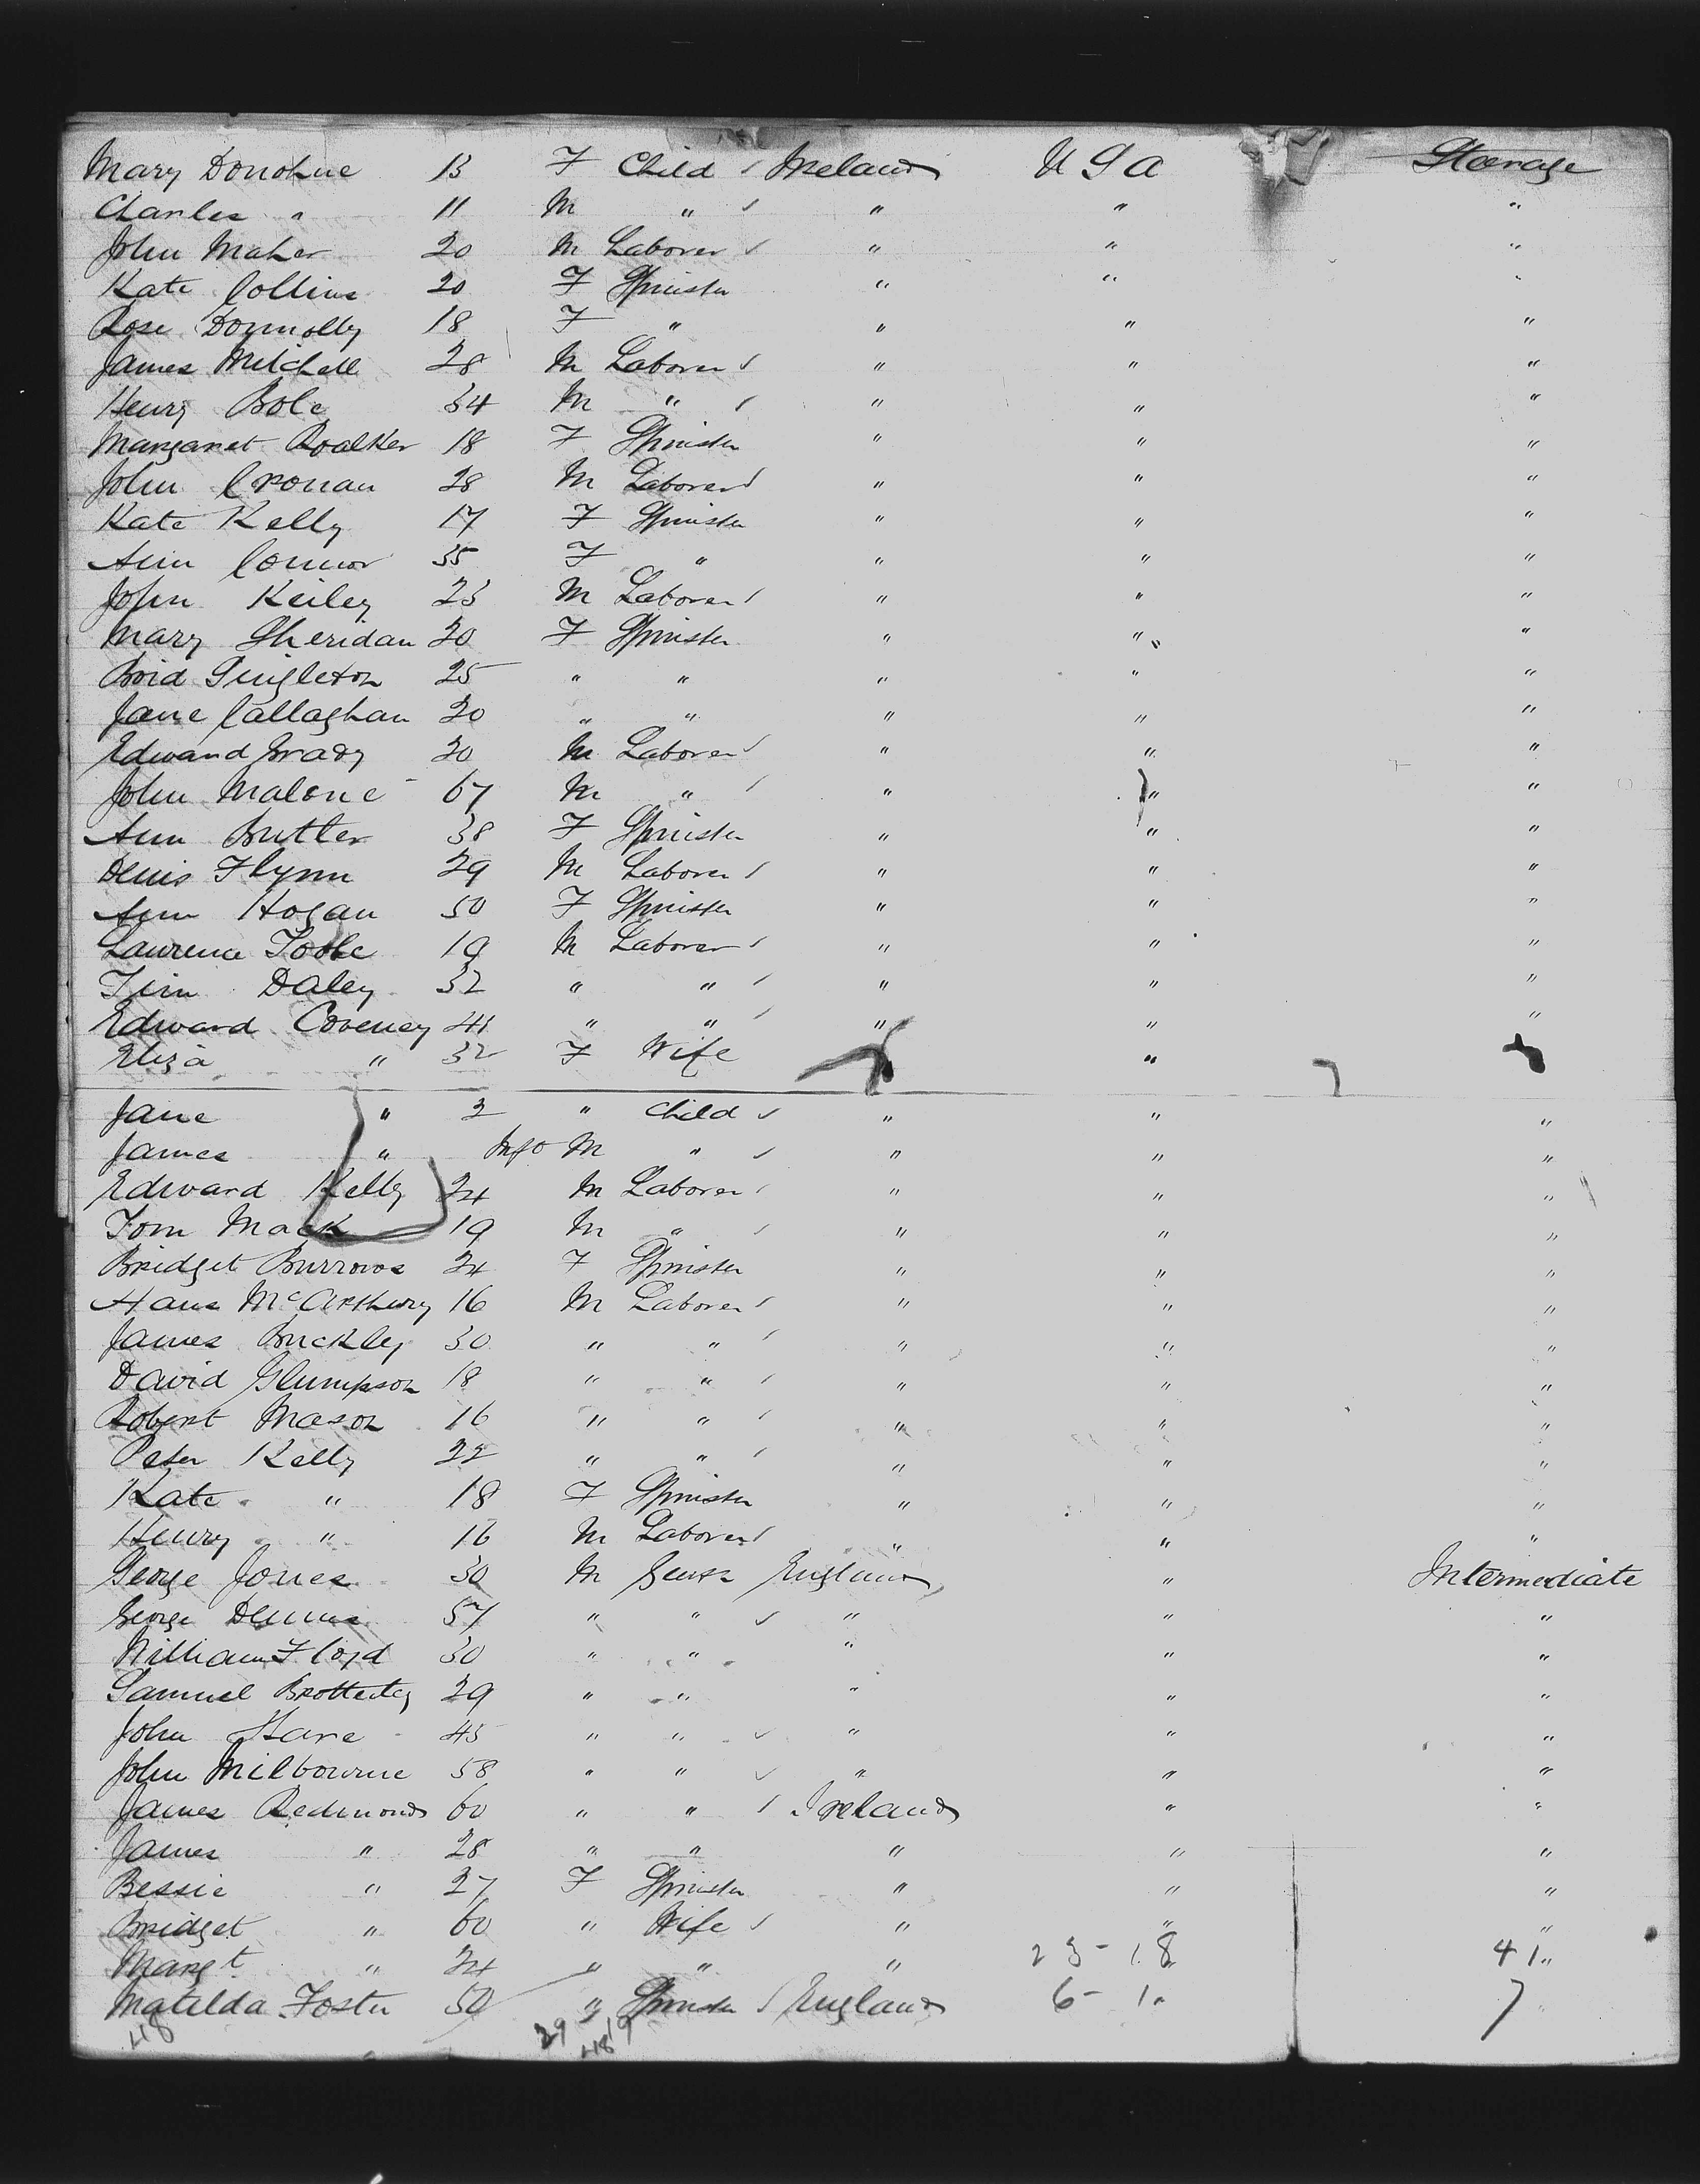 Mary Donohue 13 F Child Ireland U S A Steerage
Charles " 11 M " " " "
John Maher 20 M Laborer " " "
Kate Collins 20 F Spinster " " "
Rose Donnolly 18 F " " " "
James Mitchell 28 M Laborer " " "
Henry Bole 34 M " " " "
Margaret 18 F Spinster " " "
John Cronan 28 M Laborer " " "
Kate Kelly 17 F Spinster " " "
Ann Connor 35 F " " " "
John Keiley 23 M Laborer " " "
Mary Sheridan 20 F Spinster " " "
Brid Singleton 25 " " " " "
Jane Callaghan 20 " " " " "
Edward Grady 20 M Laborer " " "
John Malone 67 M " " " "
Ann Butler 38 F Spinster " " "
Denis Flynn 29 M Laborer " " "
Ann Hogan 50 F Spinster " " "
Laurence Toole 19 M Laborer " " "
Tim Daley 32 " " " " "
Edward Coveney 41 " " " " "
Eliza " 32 F Wife " "
Jane " 2 " Child " " "
James " Inft M " " " "
Edward Kelly 24 M Laborer " " "
Tom Mack 19 M " " " "
Bridget Burrows 24 F Spinster " " "
Hans McArthury 16 M Laborer " " "
James Buckley 30 " " " " "
David Glumpson 18 " " " " "
Robert Mason 16 " " " " "
Peter Kelly 22 " " " " "
Kate " 18 F Spinster " " "
Henry " 16 M Laborer " " "
George Jones 30 M England " Intermediate
George Dennis 57 " " " " "
William Floyd 30 " " " " "
Samuel 29 " " " " "
John Hare 45 " " " " "
John Milbourne 58 " " " " "
James Redmond 60 " " Ireland " "
James " 28 " " " " "
Bessie " 27 F Spinster " " "
Bridget " 60 " Wife " " "
Margt " 24 " " " 23-18 41
Matilda Foster 50 " Spinster England 6-1 7
48 29 19
48